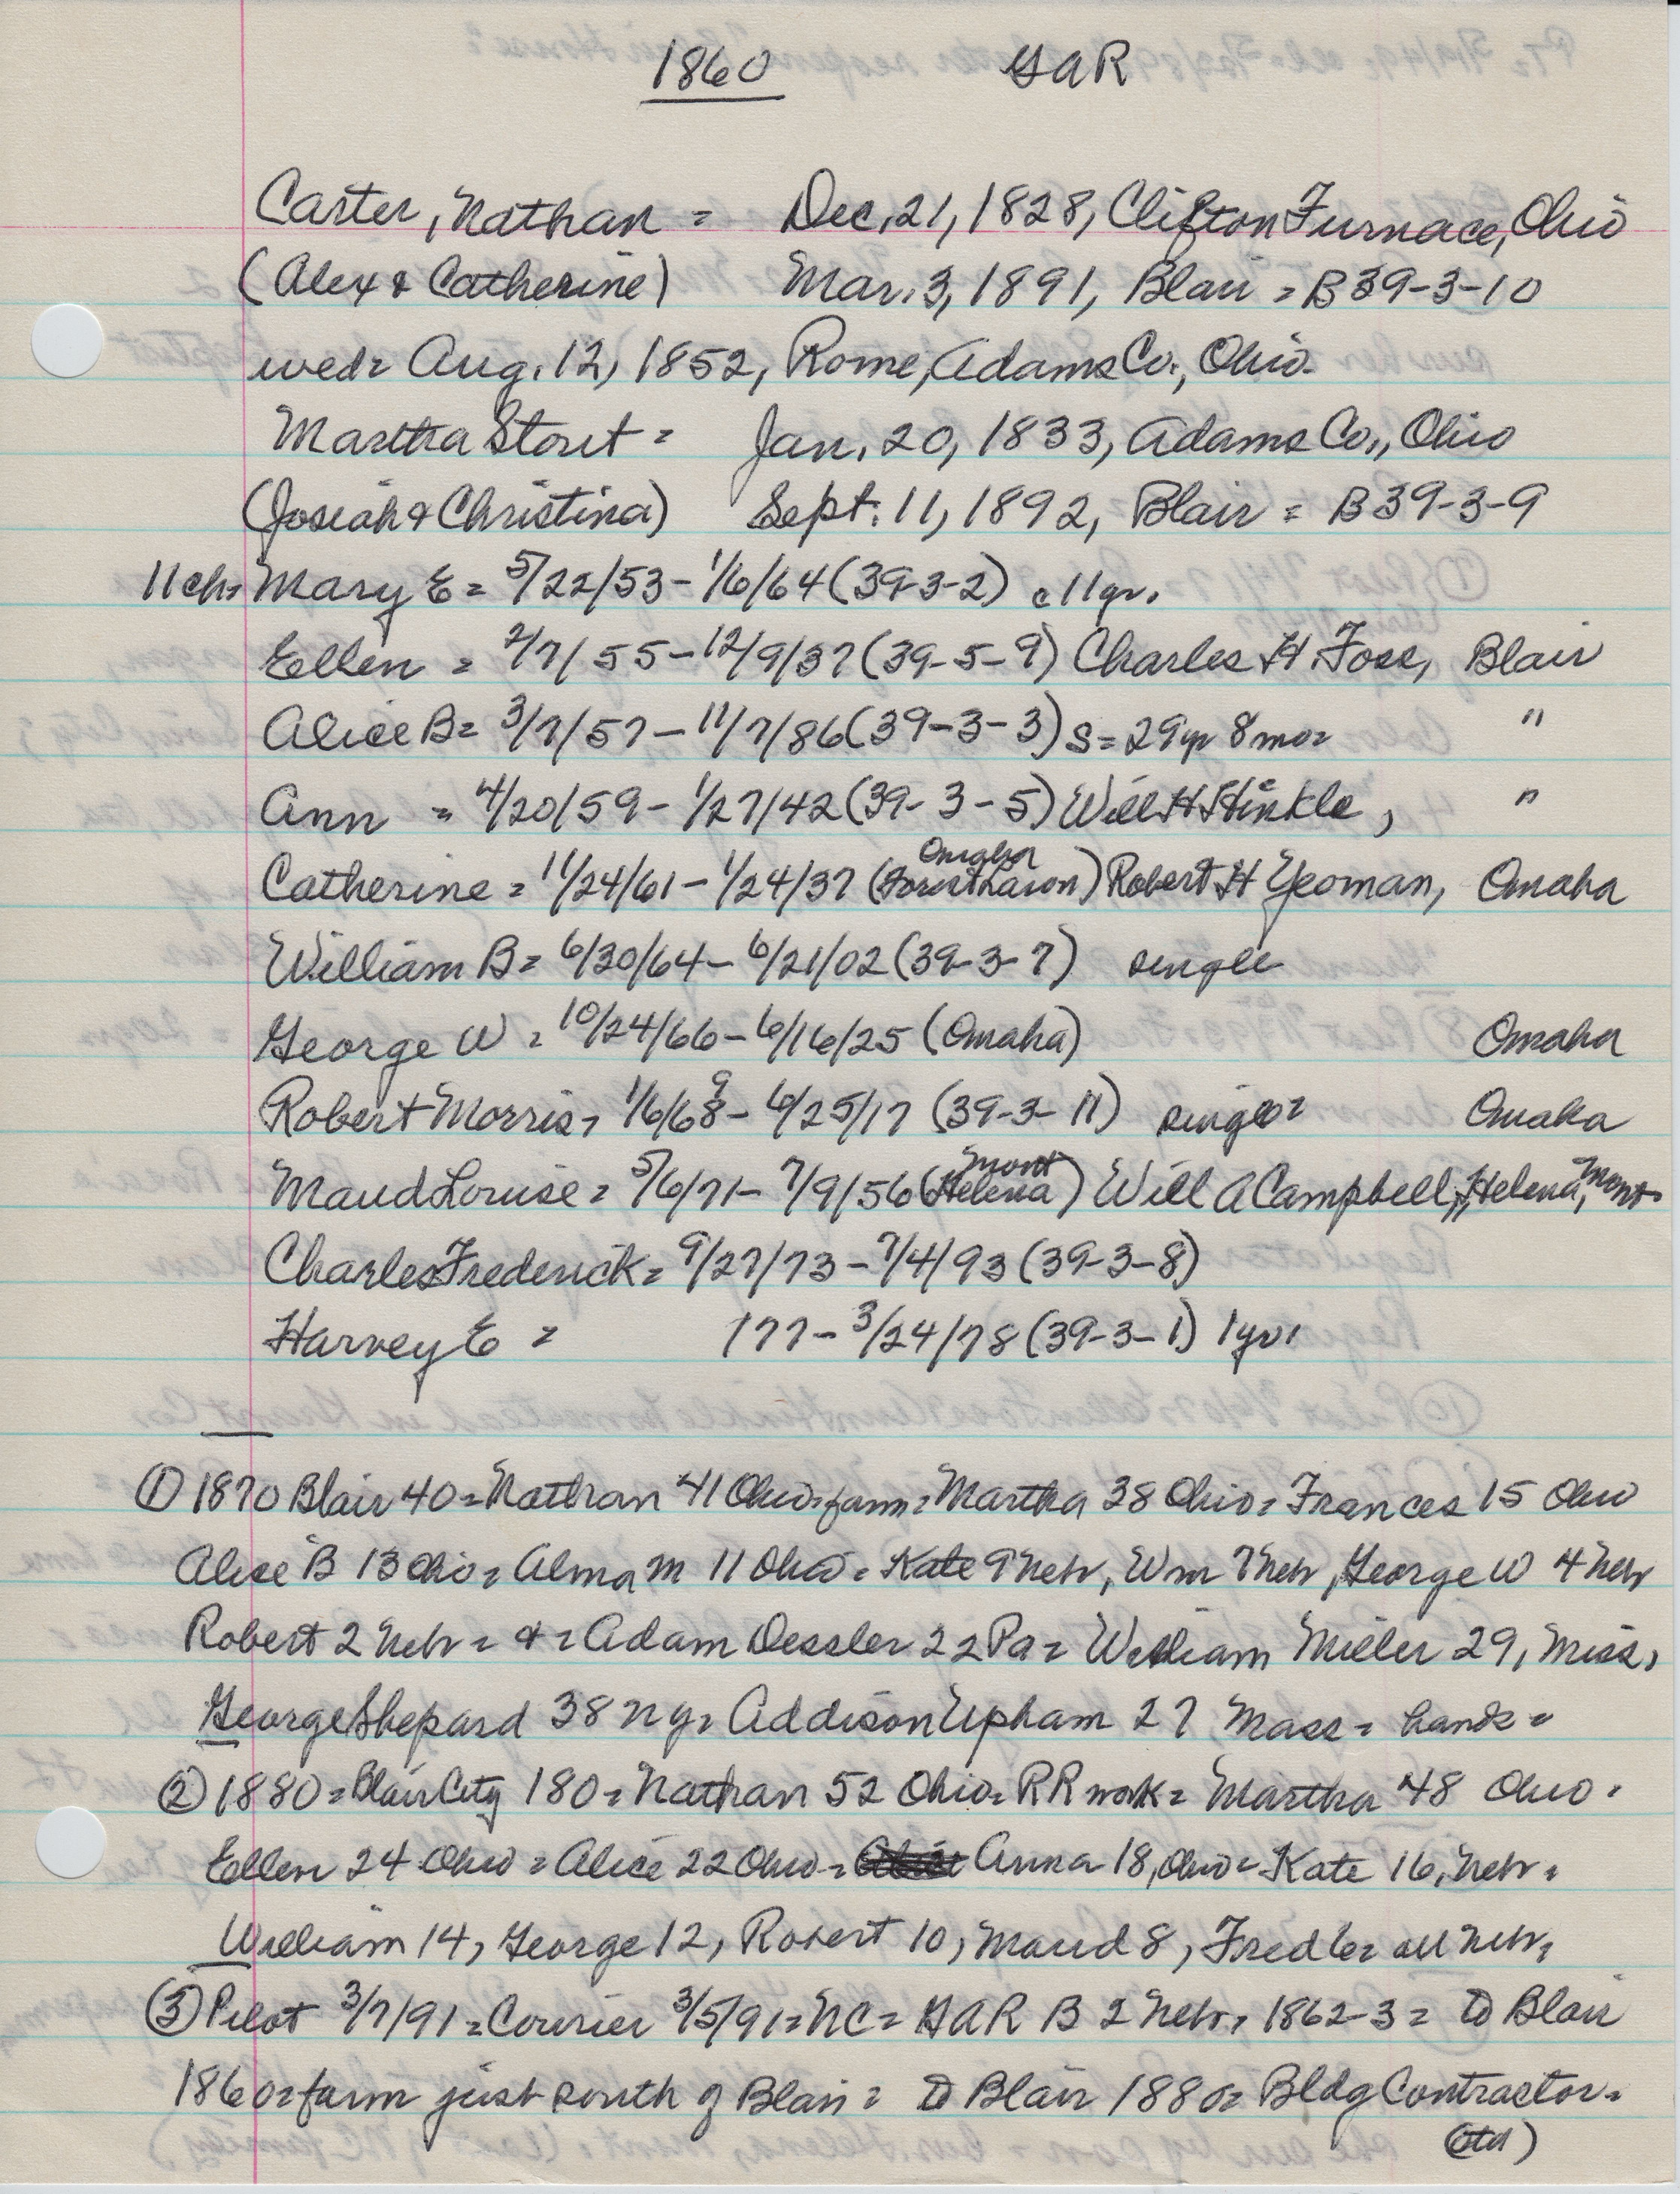 1860 GAR
Carter, Nathan = Dec. 21, 1828, Clifton Furnace, Ohio
(Alex & Catherine) Mar. 3, 1891, Blair = B39-3-10
wed= Aug. 12, 1852, Rome, Adams Co., Ohio-
Martha Stout = Jan. 20, 1833, Adams Co., Ohio
(Josiah & Christina) Sept. 11, 1892, Blair = B39-3-9
11 ch= Mary E = 5/22/53 - 1/6/64 (39-3-2) c 11 yr.
Ellen = 2/7/55 - 12/9/37 (39-5-9) Charles H. Foss, Blair
Alice B = 3/7/57 - 11/7/86 (39-3-3) S = 29 yr 8 mo= "
Ann = 4/20/59 - 1/27/42 (39-3-5) Will H Hinkle, "
Omaha
Catherine = 11/24/61 - 1/24/37 (Forest Lawn) Robert H Yeoman, Omaha
William B = 6/30/64 - 6/21/02 (39-3-7) single
George W = 10/24/66 - 6/16/25 (Omaha) Omaha
9
Robert Morris = 1/6/68 - 6/25/17 (39-3-11) single= Omaha
Mont
Maud Louise = 5/6/71 - 7/9/56 (Helena) Will A Campbell, Helena, Mont.
Charles Frederick = 9/27/73 - 7/4/93 (39-3-8)
Harvey E = /77 - 3/24/78 (39-3-1) 1 yr.
① 1870 Blair 40 = Nathan 41 Ohio = farm = Martha 38 Ohio = Frances 15 Ohio
Alice B 13 Ohio = Alma M 11 Ohio = Kate 9 Nebr, Wm 7 Nebr, George W 4 Nebr
Robert 2 Nebr = & = Adam Dessler 22 Pa = William Miller 29, Miss,
George Shepard 38 NY = Addison Upham 27 Mass = hands =
② 1880 = Blair City 180 = Nathan 52 Ohio = RR work = Martha 48 Ohio.
Ellen 24 Ohio = Alice 22 Ohio = Anna 18, Ohio = Kate 16, Nebr.
William 14, George 12, Robert 10, Maud 8, Fred 6 = all Nebr.
③ Pilot 3/7/91 = Courier 3/5/91 = NC = GAR B 2 Nebr, 1862-3 = to Blair
1860 = farm just south of Blair = to Blair 1880 = Bldg Contractor =
(ctd)